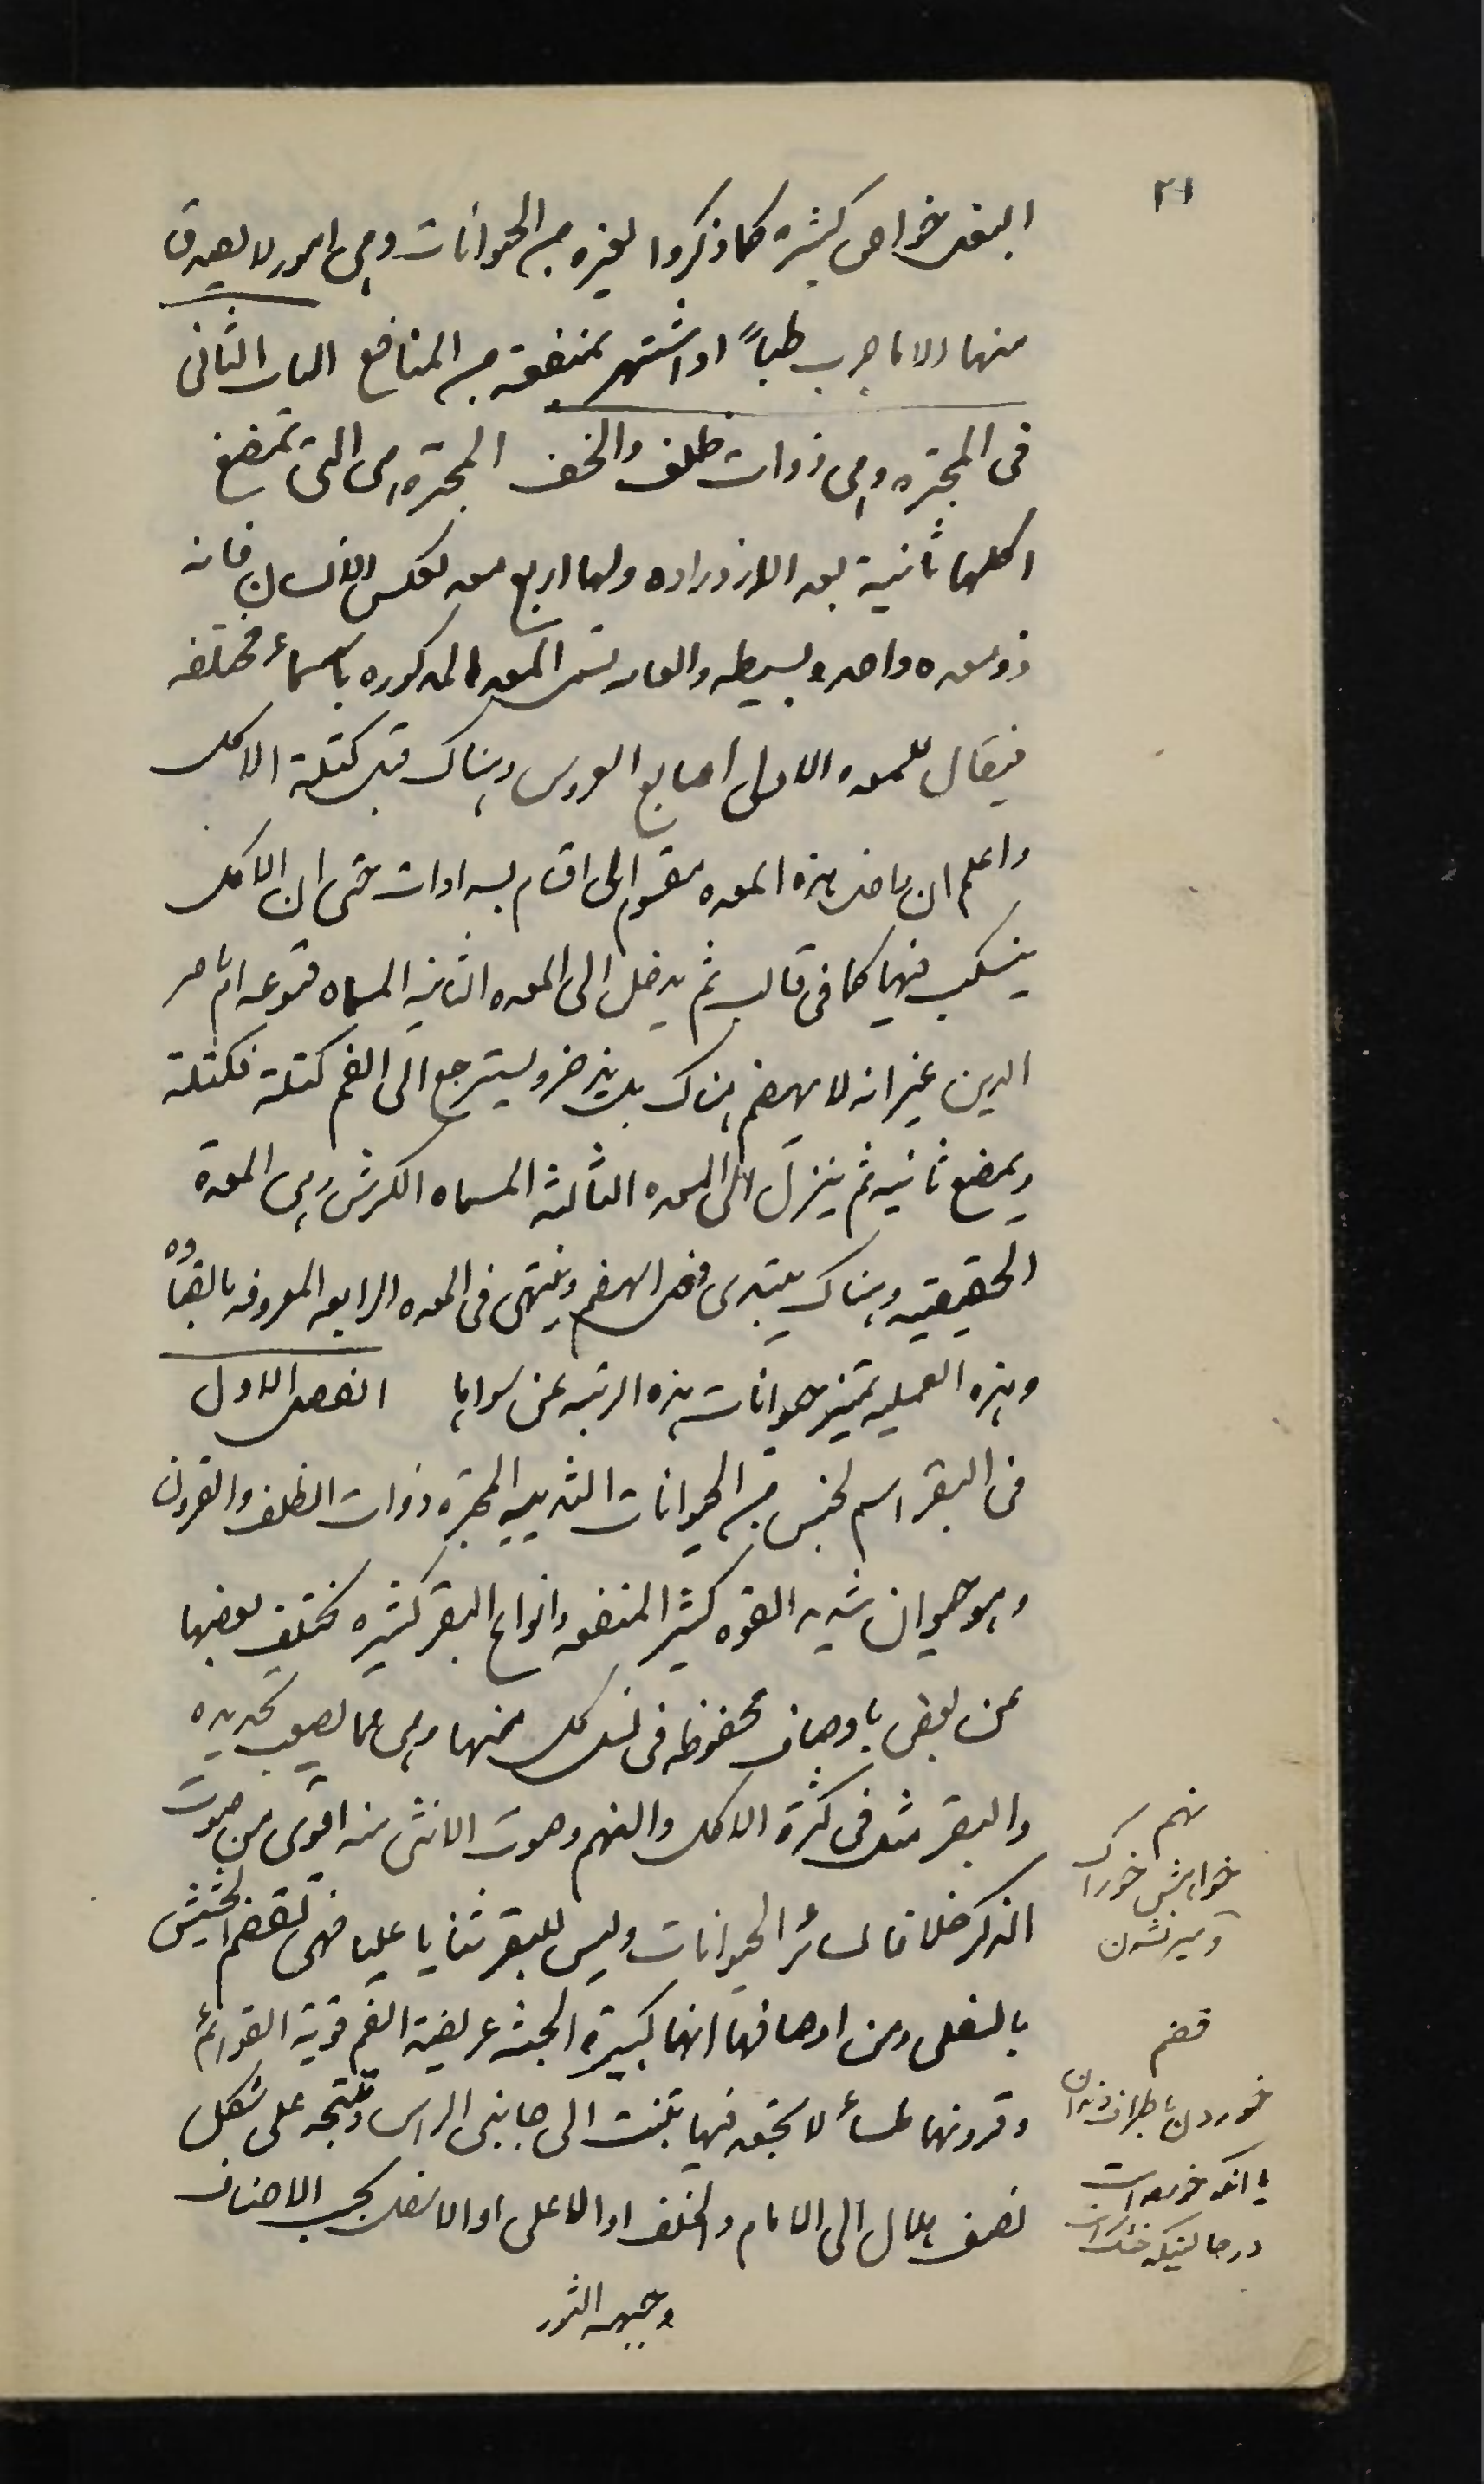 ٢١
البغل خواص كثيرة كما ذكروا لغيره من الحيوانات وهى امور لا يصدق
منها الا ما جرب طباً او اشتهر بمنفعة من المنافع الباب الثانى
فى المجتره وهى ذوات ظلف والخف المجترة هى التى تمضغ
اكلها ثانية بعد الازدراده ولها اربع معد بعكس الانسان فانه
ذو معده واحده بسيطه والعامه تسمى المعد المذكوره باسماء مختلفه
فيقال للمعده الاولى اصابع العروس وهناك تقبل كتلة الاكل
واعلم ان داخل هذه المعده مقسوم الى اقسام بسدادات حتى ان الاكل
ينسكب فيها كما فى قالب ثم يدخل الى المعده الثانيه المسماه قموعه ام ناصر
الدين غير انه لا يهضم هناك بل يذخر ويسترجع الى الفم كتلة فكتلة
ويمضغ ثانيه ثم ينزل الى المعده الثالثه المسماه الكرش وهى المعدة
الحقيقيه وهناك يبتدى فعل الهضم وينتهى فى المعده الرابعه المعروفه بالقباوه
وبهذه العمليه تتميز حيوانات هذه الرتبه عن سواها الفصل الاول
فى البقر اسم لجنس من الحيوانات الثدييه المجتره ذوات الظلف والقرون
وهو حيوان شديد القوه كثير المنفعه وانواع البقر كثيره تختلف بعضها
عن بعض باوصاف محفوظه فى نسل كل منها وهى مما يصعب تحديده
والبقر مثل فى كثرة الاكل والنهم وصوت الانثى منه اقوى من صوت
الذكر خلافا لسائر الحيوانات وليس للبقر ثنايا عليا فهى تقضم الحشيش
بالسفلى ومن اوصافها انها كبيرة الجثه عريضة الفم قوية القوائم
وقرونها ملساء لا تجتمع فيها تنبت الى جانبى الراس وتتجه على شكل
نصف هلال الى الامام والخلف او الاعلى او الاسفل بحسب الاصناف
وجبهه الثور
نهم
خواهش خوراك
وسير نشدن
قضم
خوردن باطراف دندان
يا انكه خوردنست
در حاليكه خشك است